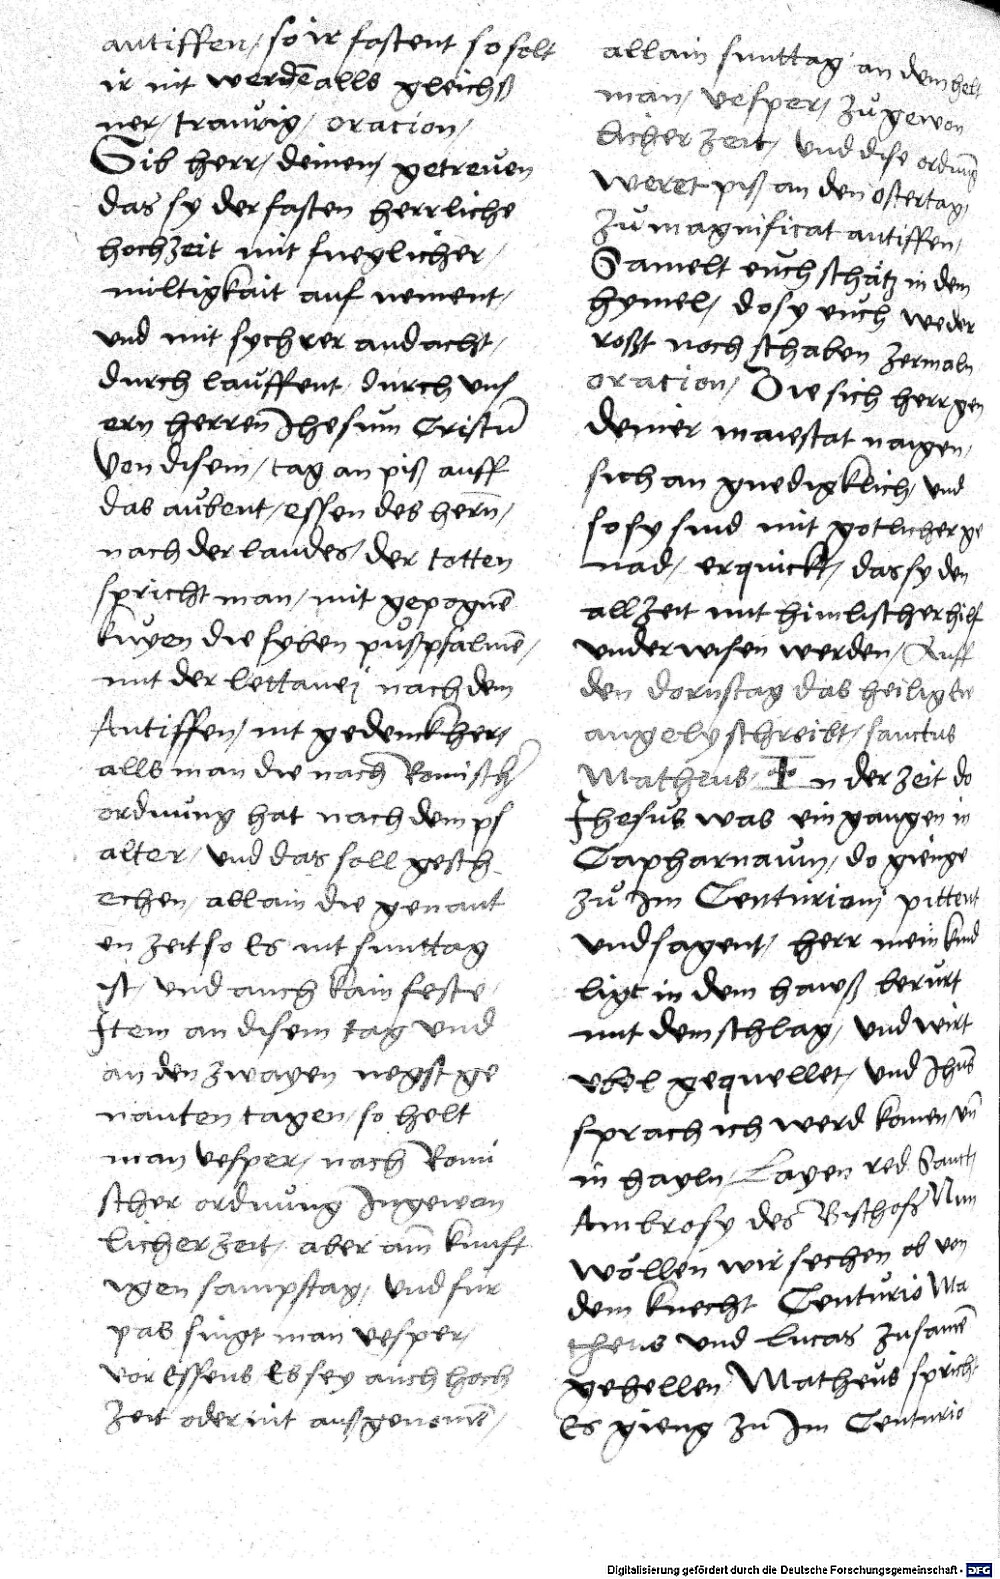 antiffen, so ir fastent so solt
ir nit werdē alls gleichß
ner, traurig, oracion,
Gib herr, deinen, getreuen
das sy der fasten herrliche
hochzeit mit fueglicher,
miltigkait auf nement,
und mit sychrer andacht,
durch lauffent, durch uns
ern herren Jhesum Cristū
Von disem, tag an piß auff
das aubent, essen des herrn,
nach der landes, der totten
spricht man, mit gepognē
knyen die syben pußpsalmē,
mit der lettanej nach dem
Antiffen, nit gedenckh her,
alls man die nach Romischer
ordnung hat nach dem ps
alter, und das soll gesch
echen, allain die genant
en zeit so Es nit sunttag
ist, und auch kain feste,
Item an disem tag und
an den zwayen negst ge
nanten tagen, so helt
man vesper, nach Romi
scher ordnung In gewon
licher zeit, aber am kunft
igen sampstag, und fur
pas singt man vesper,
vor Essens Es sey auch hoch
zeit oder nit außgenomē,
allain sunttag, an dem helt
man, vesper, zu gewon
licher zeit, und dise ordnūg
weret piß an den ostertag,
zu magnificat antiffen,
Samelt euch schätz in dem
hymel, do sy euch weder
roßt noch schaben zermaln
oracion, Die sich herr gen
deiner maiestat naigen,
sich an gnedigklich, und
so sy sind mit gotlicher ge
nad, erquickt, das sy den
allzeit mit himlischer hilf
underwisen werden, Auff
den dornstag das heilig eu
angely schreibt, sanctus
Matheus, In der zeit do
Jhesus was ein gangen in
Capharnaum, do gienge
zu Im Centurionj pittent
und sagent, herr mein kind
ligt in dem hawß berurt
mit dem schlag, und wirt
ubel gequellet, und Jhūs
sprach ich werd komen, uñ
in hayln, Layen red Sanct,
Ambrosy des Bischofs Nun
wöllen wir sechen ob von
dem knecht Centurio Ma
theus und Lucas zusamē
gehellen, Matheus spricht,
Es gieng zu Im Centurio
Digitalisierung gefördert durch die Deutsche Forschungsgemeinschaft - DFG